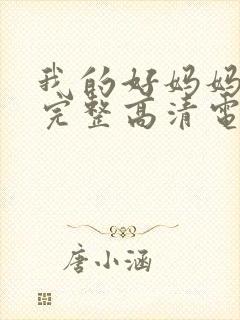 我的好妈妈
完整高清电
唐小涵